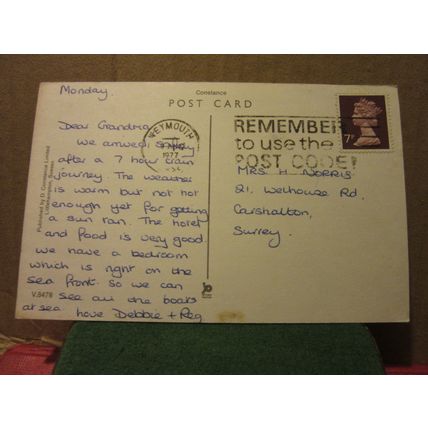 Constance
POST CARD
Monday.
Dear Grandma
We arrived safely
after a 7 hour train
journey. The weather
is warm but not hot
enough yet for getting
a sun tan. The hotel
and food is very good.
We have a bedroom
which is right on the
sea front. So we can
see all the boats
at sea love Debbie + Reg
Published by D. Constance Limited
Littlehampton, Sussex
V.8478
WEYMOUTH
1977
REMEMBER
to use the
POST CODE!
7P
MRS H NORRIS
21, Welhouse Rd,
Carshalton,
Surrey.